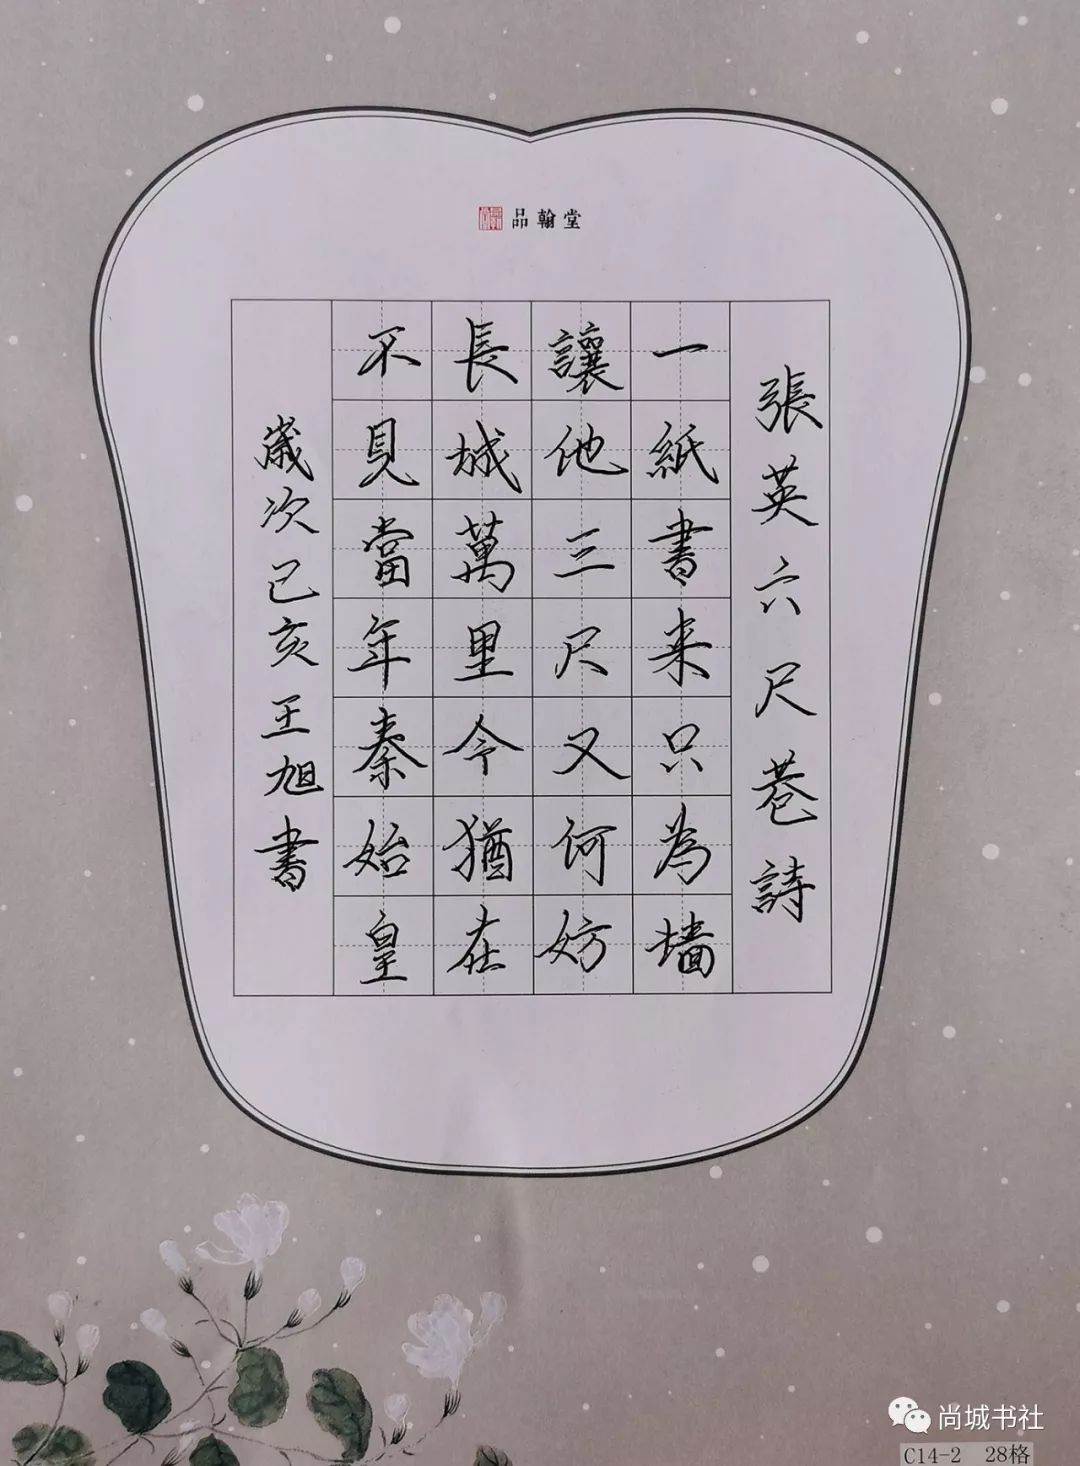 品翰堂
張英六尺巷詩
一紙書来只為墙
讓他三尺又何妨
長城萬里今猶在
不見當年秦始皇
歲次己亥王旭書
尚城书社
C14-2 28格